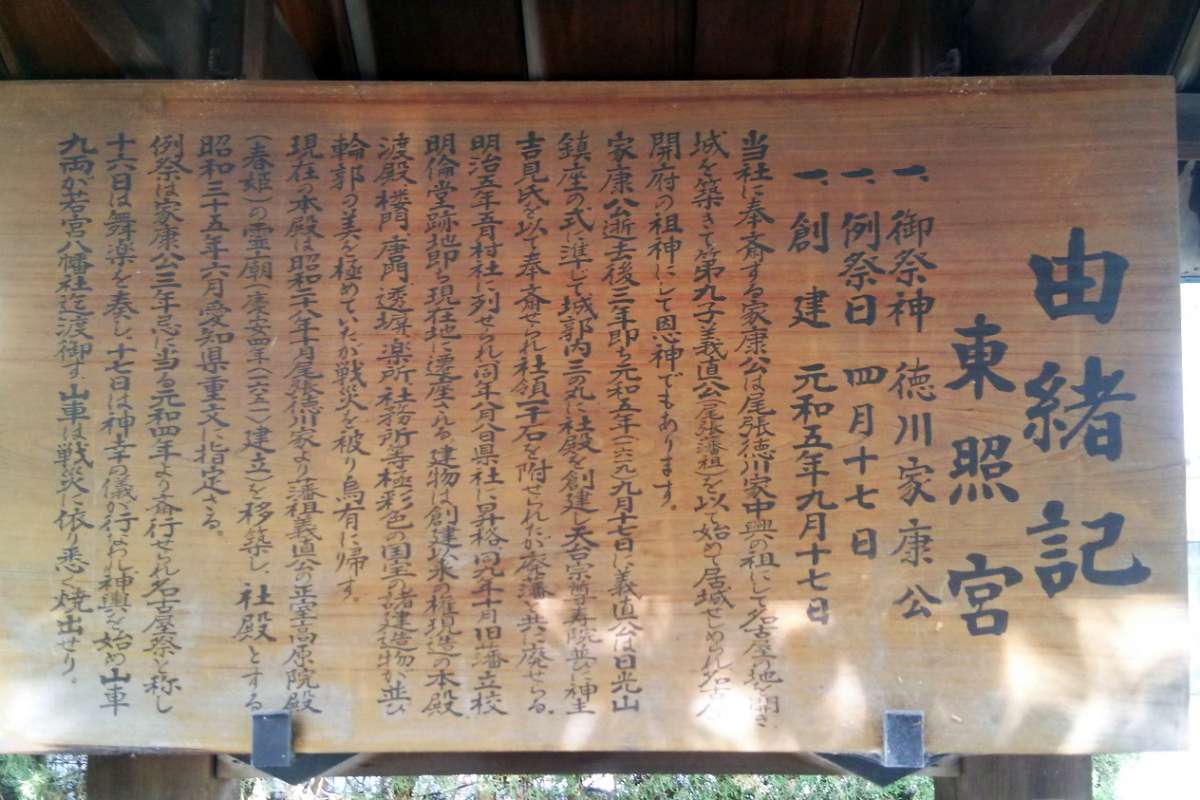 由緒記
東照宮
一、御祭神 徳川家康公
一、例祭日 四月十七日
一、創建 元和五年九月十七日
当社に奉斎する家康公は尾張徳川家中興の祖にして名古屋の地を開き
城を築きて第九子義直公(尾張藩祖)を以て始めて居城せしめられ名古屋
開府の祖神にして恩神でもあります。
家康公逝去後三年即ち元和五年(一六一九)九月十七日に義直公は日光山
鎮座の式に準じて城郭内三の丸に社殿を創建し天台宗尊寿院並びに神主
吉見氏を以て奉斎せられ社領一千石を附せられたが廃藩と共に廃せらる。
明治五年五月村社に列せられ同年八月八日県社に昇格同九年十月旧藩立校
明倫堂跡地即ち現在地に遷座さる。建物は創建以来の権現造の本殿
渡殿、楼門、唐門、透塀、楽所、社務所等極彩色の国宝の諸建造物が並び
輪郭の美を極めていたが戦災を被り烏有に帰す。
現在の本殿は昭和二八年十月尾張徳川家より藩祖義直公の正室高原院殿
(春姫)の霊廟(慶安四年(一六五一)建立)を移築し、社殿とする
昭和三十五年六月愛知県重文に指定さる。
例祭は家康公三年忌に当る元和四年より斎行せられ名古屋祭と称し
十六日は舞楽を奏し、十七日は神幸の儀が行なわれ神輿を始め山車
九両が若宮八幡社迄渡御す 山車は戦災に依り悉く焼出せり。